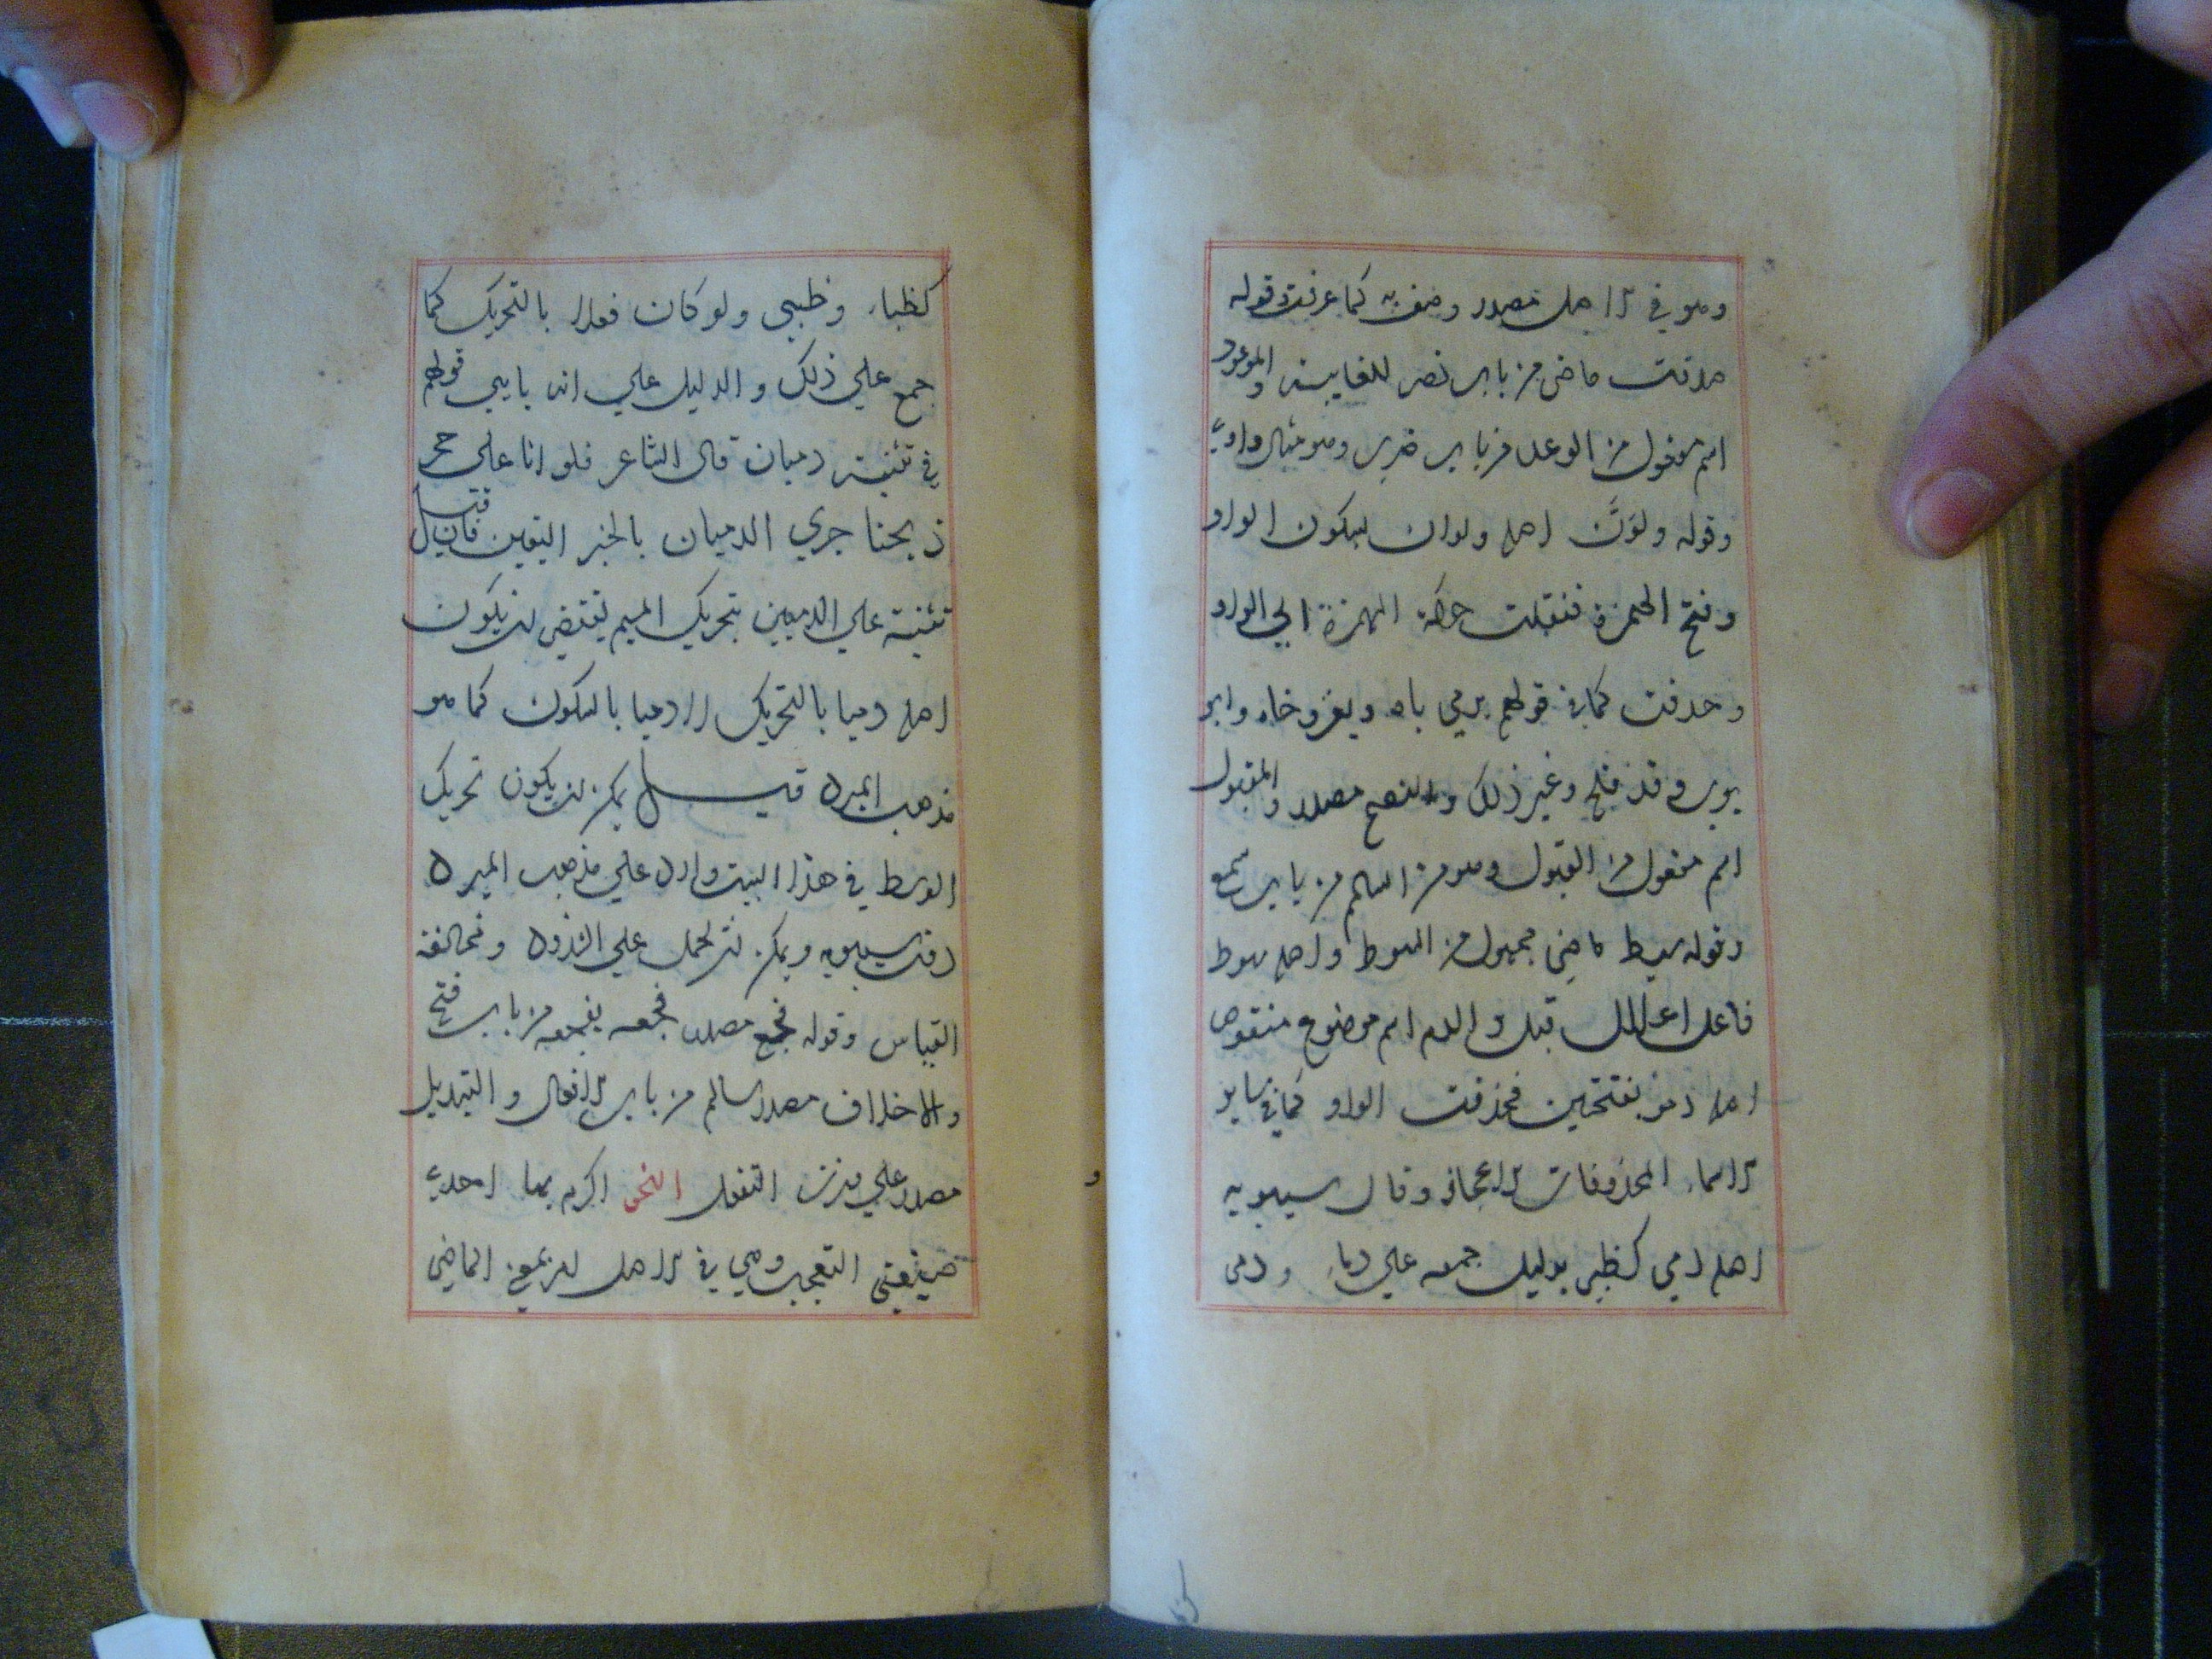 وهو في الاصل مصدر وصف به كما عرفت وقوله
صدقت ماضي من باب نصر للغايبة والموعود
اسم مفعول من الوعد من باب ضرب وهو مثال واوي
وقوله ولوَنَّ اصله ولوان بسكون الواو
وفتح الهمزة فنقلت حركة الهمزة الي الواو
وحذفت كما في قولهم يرمي باه ويغزو خاه وابو
يوب وقد فلح وغير ذلك والنصح مصدر والمقبول
اسم مفعول من القبول وهو من السالم من باب سمع
وقوله سيط ماضي مجهول من السوط واصله سوط
فاعل اعلال قيل والدم اسم موضوع منقوص
اصله دمو بفتحتين فحذفت الواو كما في ساير
الاسماء المحذوفات الاعجاز وقال سيبويه
اصله دمي كظبي بدليل جمعه علي دماء ودمي
كظباء وظبي ولو كان فعلا بالتحريك لما
جمع علي ذلك والدليل علي انه يايي قولهم
في تثنيته دميان قال الشاعر فلو انا علي حجر
ذبحنا جري الدميان بالخبر اليقين فان قيل
تثنية علي الدميين بتحريك الميم يقتضي ان يكون
اصله دميا بالتحريك لا دميا بالسكون كما هو
مذهب المبرد قيل يمكن ان يكون تحريك
الوسط في هذا البيت وارد علي مذهب المبرد
دون سيبويه ويمكن ان يحمل علي الشذوذ ومخالفة
القياس وقوله فجع مصدر فجعه يفجعه من باب فتح
والاخلاف مصدر سالم من باب الافعال والتبديل
مصدر علي وزن التفعل النحو اكرم بها احدي
صيغتي التعجب وهي في الاصل بمعني الماضي